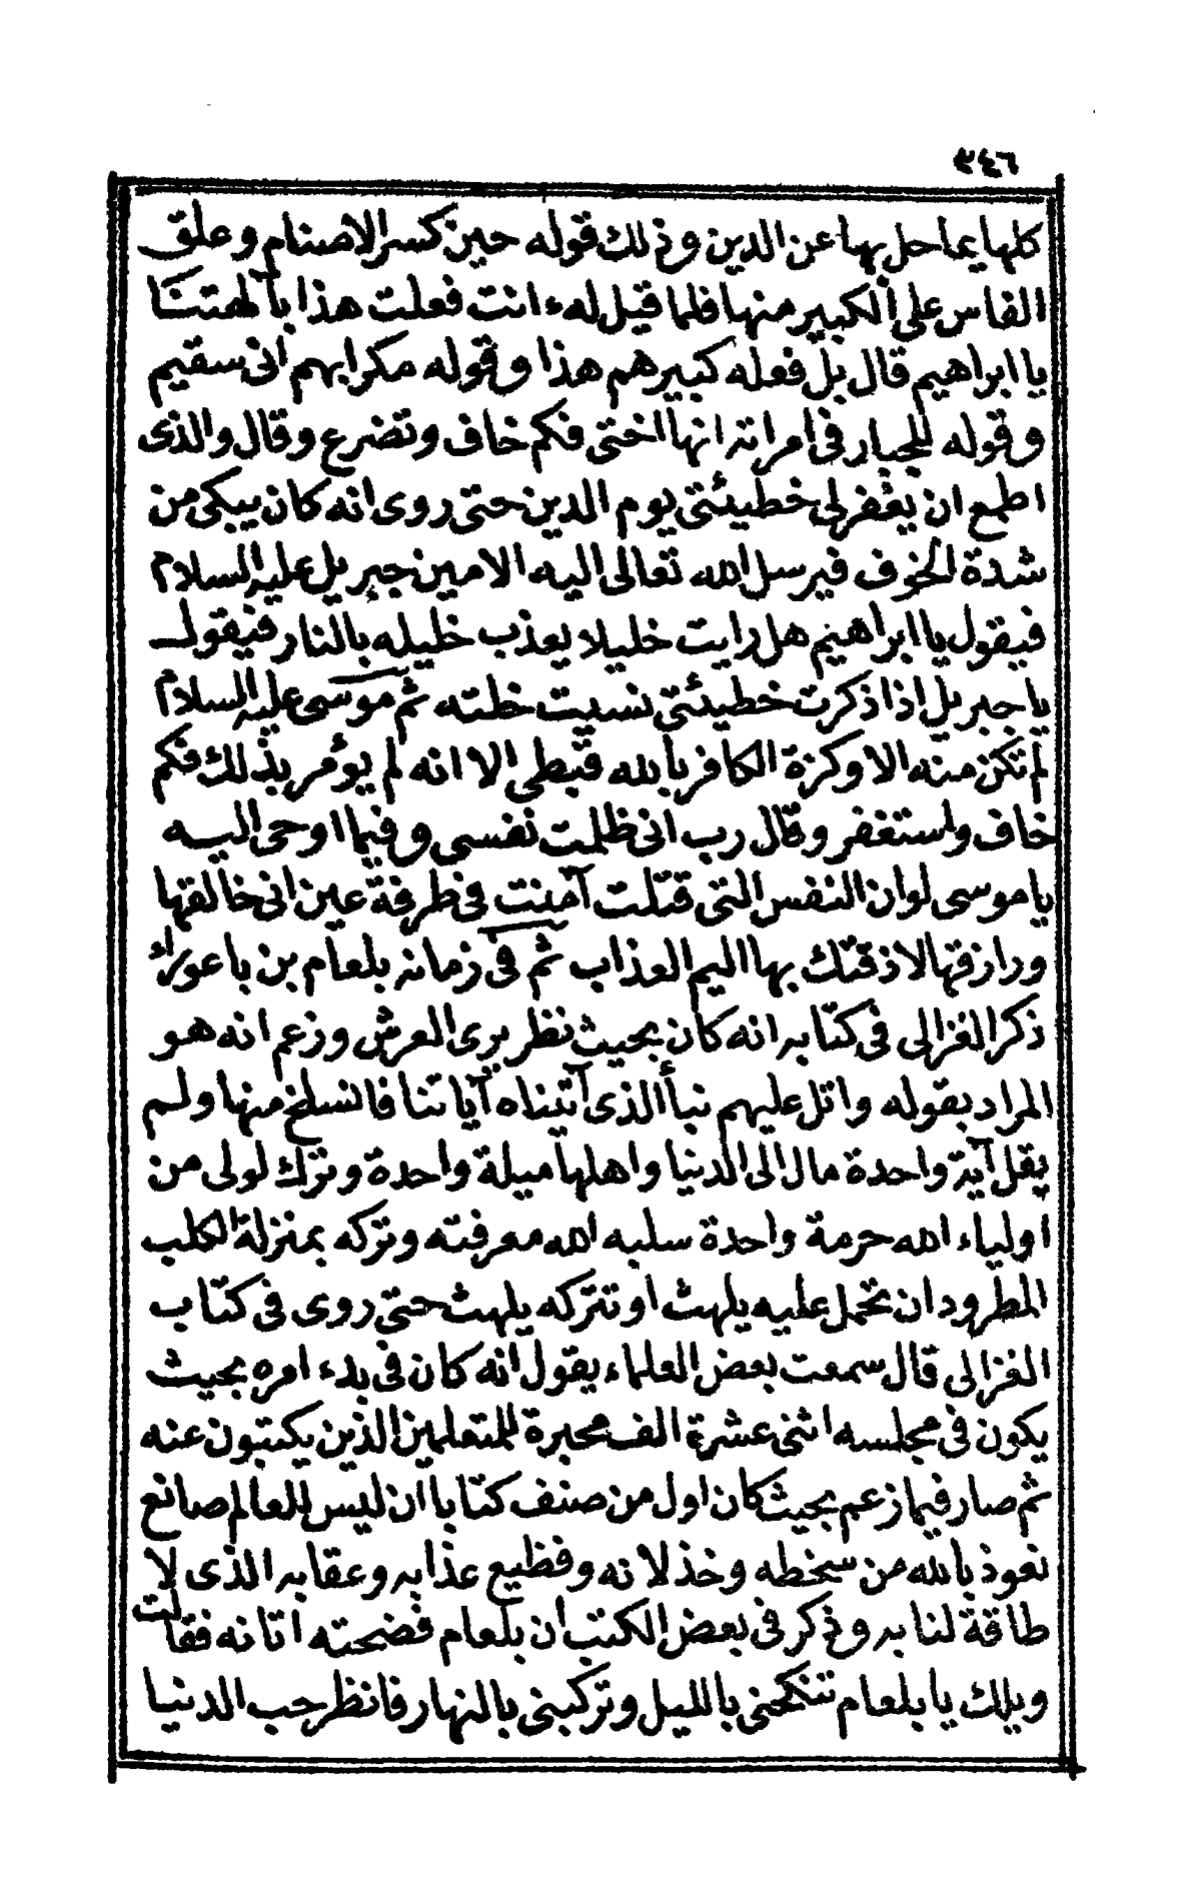 ٣٤٦
كلها يما حل بها عن الدين وذلك قوله حين كسر الاصنام وعلق
الفاس على الكبير منها فلما قيل له ءانت فعلت هذا بآلهتنا
يا ابراهيم قال بل فعله كبيرهم هذا وقوله مكرا بهم انى سقيم
وقوله للجبار فى امراته انها اختى فكم خاف وتضرع وقال والذى
اطمع ان يغفر لى خطيئتى يوم الدين حتى روى انه كان يبكى من
شدة الخوف فيرسل الله تعالى اليه الامين جبريل عليه السلام
فيقول يا ابراهيم هل رايت خليلا يعذب خليله بالنار فيقول
يا جبريل اذا ذكرت خطيئتى نسيت خلته ثم موسى عليه السلام
لم تكن منه الا وكزة الكافر بالله قبطى الا انه لم يؤمر بذلك فكم
خاف واستغفر وقال رب انى ظلمت نفسى وفيما اوحى اليه
يا موسى لو ان النفس التى قتلت آمنت فى طرفة عين انى خالقها
ورازقها لاذقتك بها اليم العذاب ثم فى زمانه بلعام بن باعوراء
ذكر الغزالى فى كتابه انه كان بحيث نظر يرى العرش وزعم انه هو
المراد بقوله واتل عليهم نبأ الذى آتيناه آياتنا فانسلخ منها ولم
يقل آية واحدة مال الى الدنيا واهلها ميلة واحدة وترك لولى من
اولياء الله حرمة واحدة سلبه الله معرفته وتركه بمنزلة الكلب
المطرود ان تحمل عليه يلهث او تتركه يلهث حتى روى فى كتاب
الغزالى قال سمعت بعض العلماء يقول انه كان فى بدء امره بحيث
يكون فى مجلسه اثنى عشرة الف محبرة للمتعلمين الذين يكتبون عنه
ثم صار فيما زعم بحيث كان اول من صنف كتابا ان ليس للعالم صانع
نعوذ بالله من سخطه وخذلانه وفظيع عذابه وعقابه الذى لا
طاقة لنا به وذكر فى بعض الكتب ان بلعام فضحته اتانه فقالت
ويلك يا بلعام تنكحنى بالليل وتركبنى بالنهار فانظر حب الدنيا